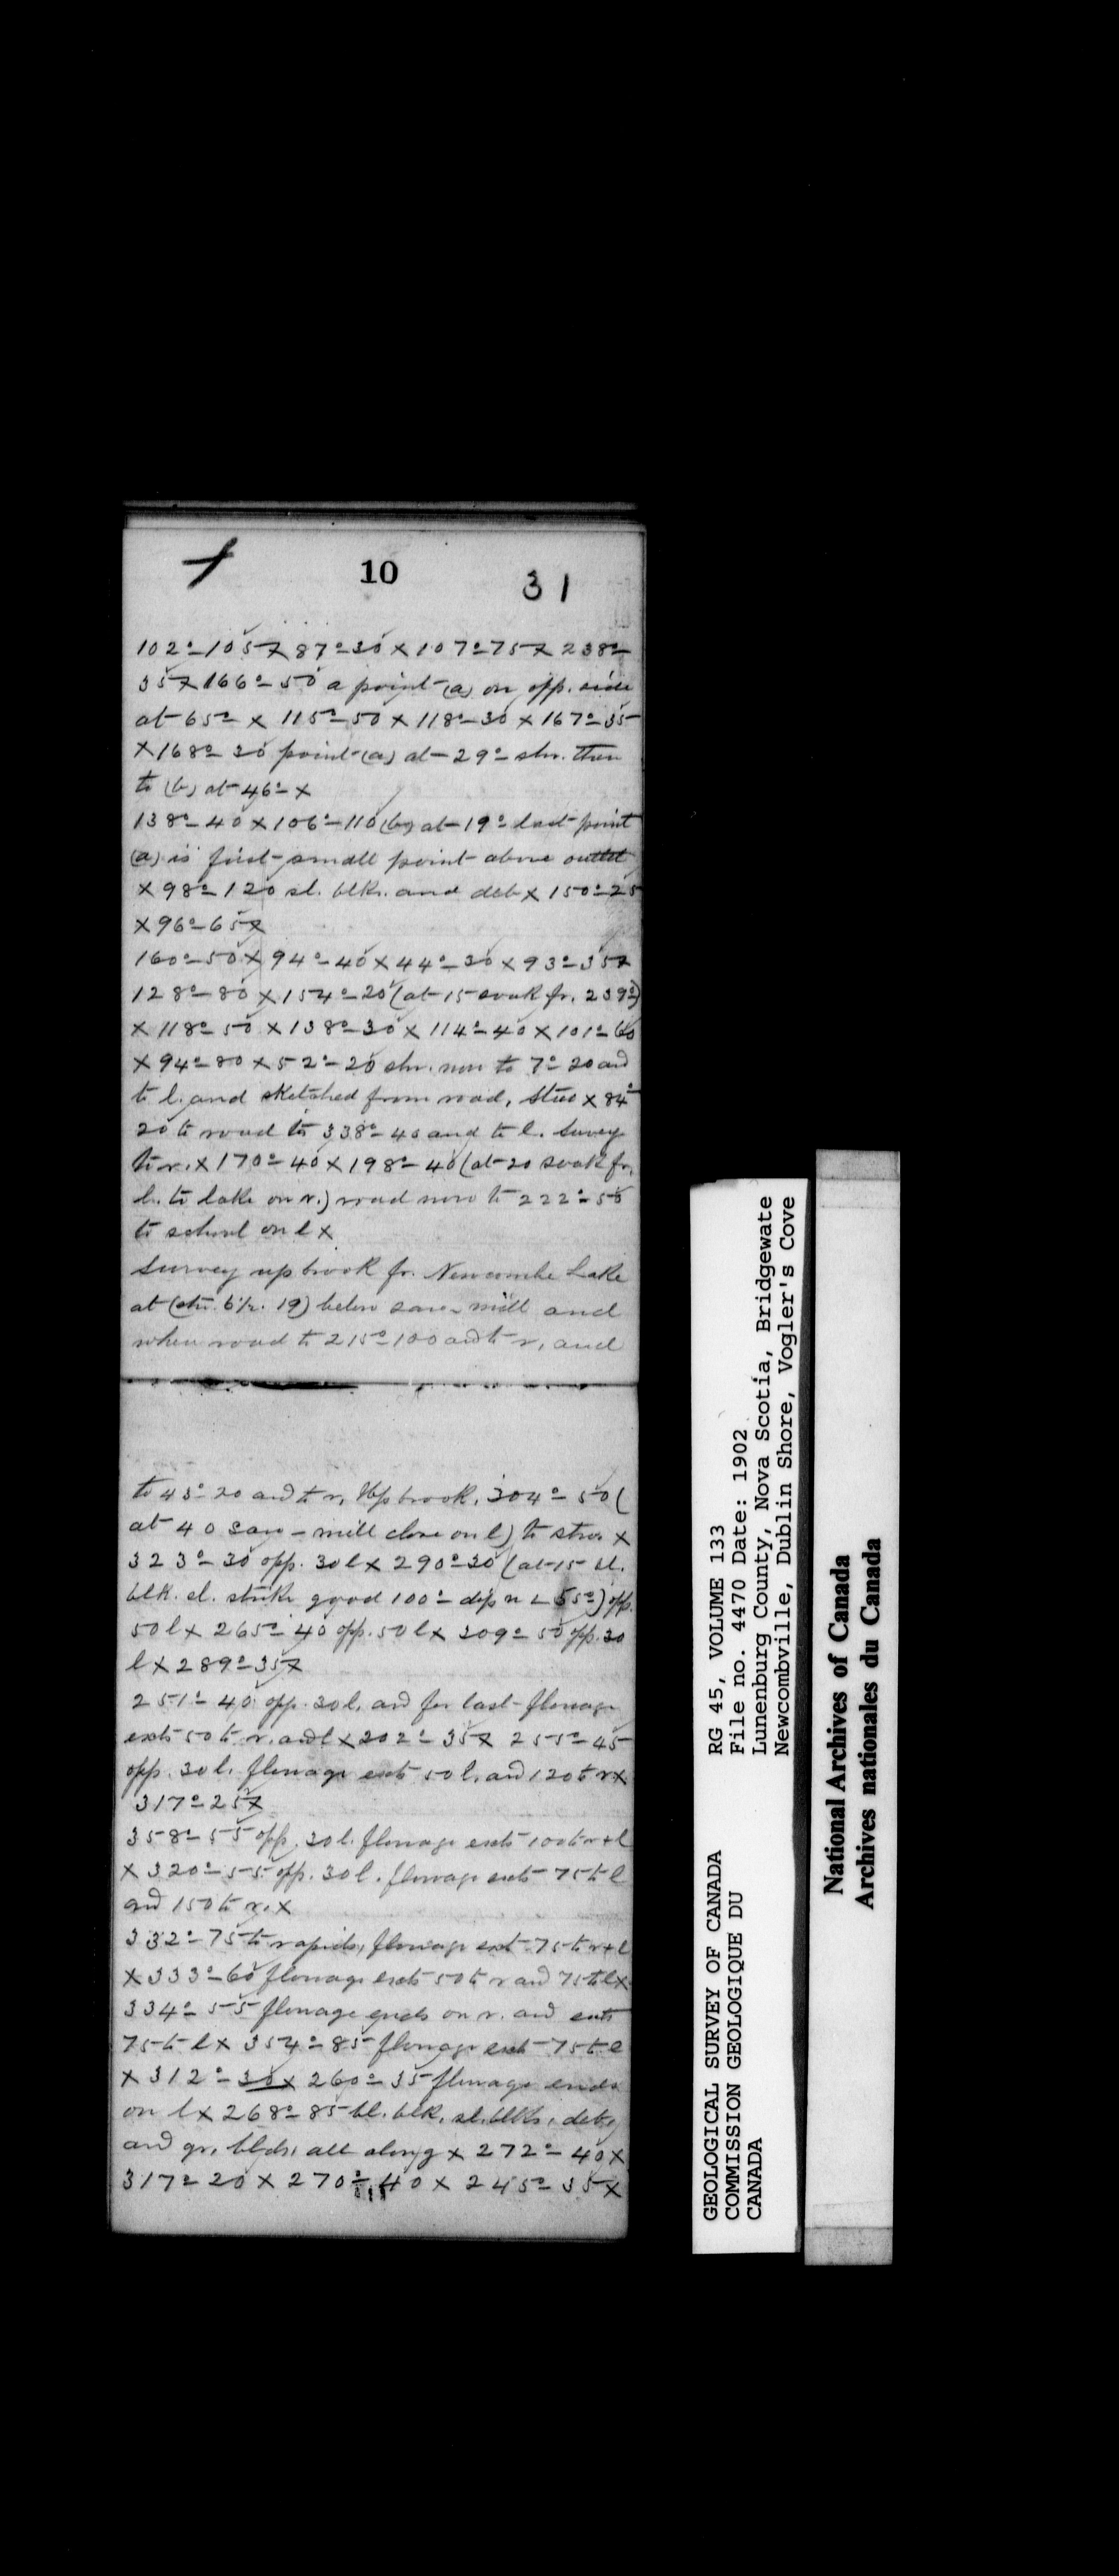 10
31
102°-105 x 87°-30 x 107°-75 x 238°-
35 x 166°-50 a point (a) on opp. side
at 65° x 115°-50 x 118°-30 x 167°-35
x 168°-30 point (a) at 29° str. then
to (b) at 46° x
138°-40 x 106°-110 (b) at 19° last point
(a) is first small point above outlet
x 98°-120 sl. blks. and deb x 150°-25
x 96°-65 x
160°-50 x 94°-40 x 44°-30 x 93°-35 x
128°-80 x 154°-20 (at 15 soak fr. 239°)
x 118°-50 x 138°-30 x 114°-40 x 101°-60
x 94°-80 x 52°-20 shr. now to 7°-20 and
to l. and sketched from road, x 84°
20 to road to 338°-40 and to l. Survey
to r. x 170°-40 x 198°-40 (at 20 soak fr.
l. to lake on r.) road now to 222°-50
to school on l x
Survey up brook fr. Newcombe Lake
at (str. 6 1/2. 19) below saw-mill and
when road to 215°-100 and to r, and
to 43°-20 and to r. Up brook, 304°-50 (
at 40 saw-mill close on l) to x
323°-30 opp. 30 l x 290°-30 (at 15 sl.
blk. sl. strike good 100° dip n ∟ 55°) opp.
50 l x 265°-40 opp. 50 l x 309°-50 opp. 30
l x 289°-35 x
251°-40 opp. 30 l. and for last flowage
exts 50 to r. and l x 202°-35 x 255°-45
opp. 30 l. flowage exts 50 l. and 120 to r x
317°-25 x
358°-55 opp. 30 l. flowage exts 100 to r + l
x 320°-55 opp. 30 l. flowage exts 75 to l
and 150 to r. x
332°-75 to rapids, flowage ext 75 to r + l
x 333°-60 flowage exts 50 to r and 75 to l x
334°-55 flowage ends on r. and exts
75 to l x 354°-85 flowage ext 75 to l
x 312°-30 x 260°-35 flowage ends
on l x 268°-85 bl. blk. sl. blks. deb.
and gr. blds. all along x 272°-40 x
317°-20 x 270°-40 x 245°-35 x
GEOLOGICAL SURVEY OF CANADA
COMMISSION GEOLOGIQUE DU
CANADA
RG 45, VOLUME 133
File no. 4470 Date: 1902
Lunenburg County, Nova Scotia, Bridgewate
Newcombville, Dublin Shore, Vogler's Cove
National Archives of Canada
Archives nationales du Canada